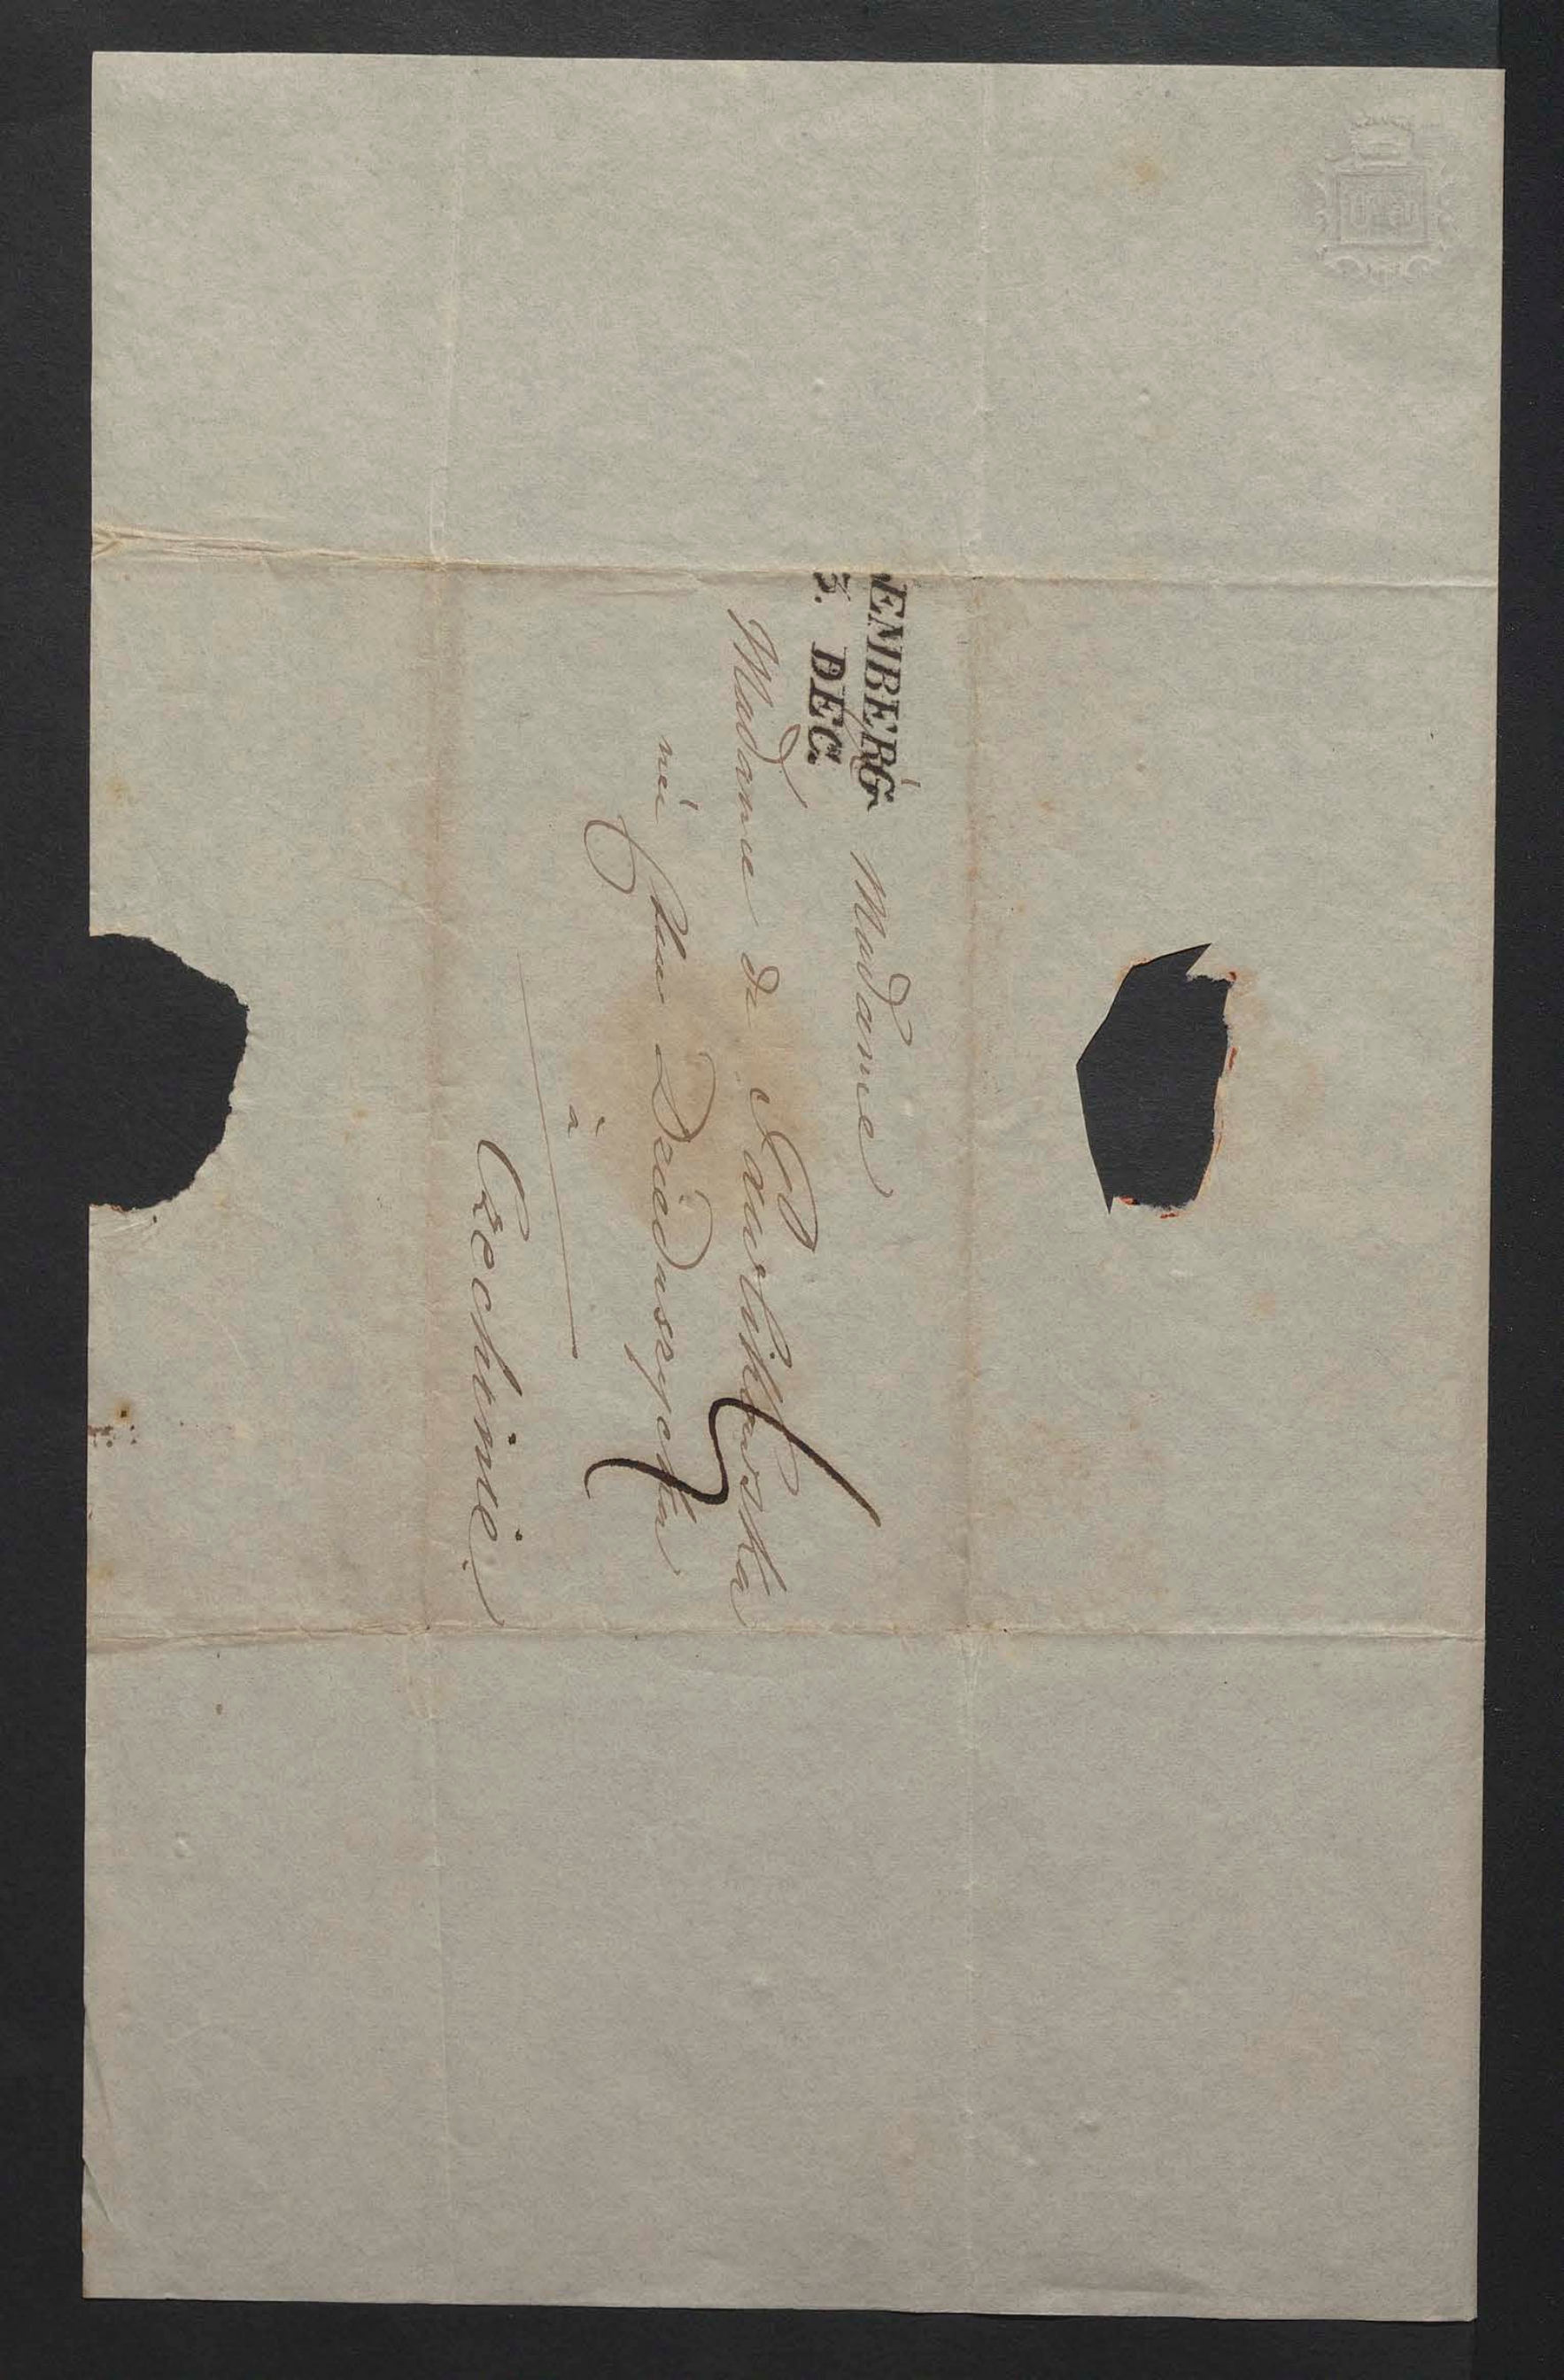 EMBERG
3. DEC.
Madame
Madame de Pawlikowska
née Ctsse Dzieduszycka
à
Czechinie